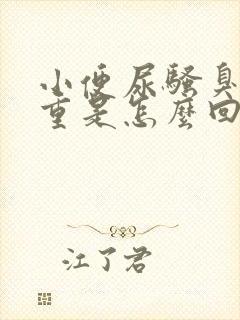 小便尿騷臭
重是怎麼回
江了君